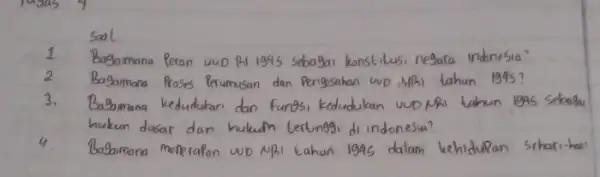 Tugas 4
Soal
1 Bagaimana Peran UUD RI 1945 sebagai konstitusi negara indonesia?
2 Bagaimana Proses Perumusan dan Pengesahan UUD NRI tahun 1945?
3. Bagaimana kedudukan dan fungsi kedudukan UUD NRI tahun 1945 sebagai
hukum dasar dan hukum tertinggi di indonesia?
4. Bagaimana menerapan UUD NRI tahun 1945 dalam kehidupan sehari-hari